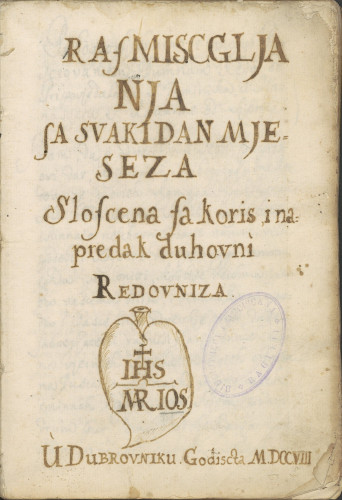 RAſMISCGLJA
NJA
ſA SVAKI DAN MJE-
SEZA
Sloſcena ſa koris, i na-
predak duhovni
REDOVNIZA.
IHS
MRIOS
U DUBROVNIKU. Godiscta MDCCVIII